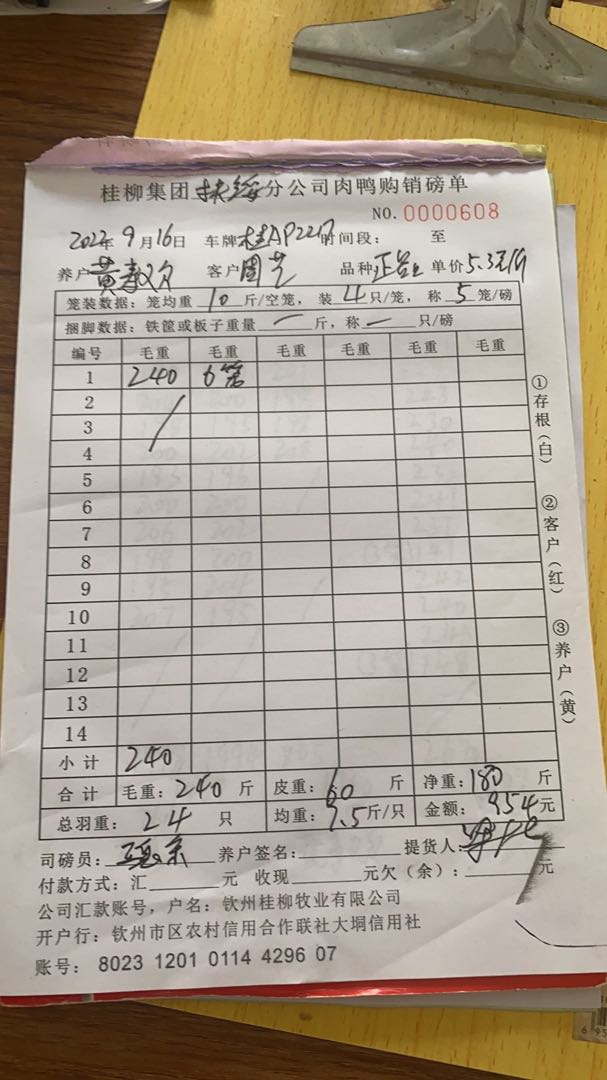 桂柳集团扶绥分公司肉鸭购销磅单
NO.0000608
2022年9月16日 车牌桂AP221 时间段: 至
养户黄 客户周艺 品种正品 单价5.3元/斤
笼装数据:笼均重10斤/空笼,装4只/笼,称5笼/磅
捆脚数据:铁筐或板子重量一斤,称一只/磅
编号 毛重 毛重 毛重 毛重 毛重 毛重
1 240 6笼
2
3
4
5
6
7
8
9
10
11
12
13
14
小计 240
合计 毛重:240斤 皮重:60斤 净重:180斤
总羽重:24只 均重:7.5斤/只 金额:954元
司磅员: 养户签名: 提货人:
付款方式:汇 元 收现 元欠(余): 元
公司汇款账号,户名:钦州桂柳牧业有限公司
开户行:钦州市区农村信用合作联社大垌信用社
账号:8023 1201 0114 4296 07
①存根(白) ②客户(红) ③养户(黄)